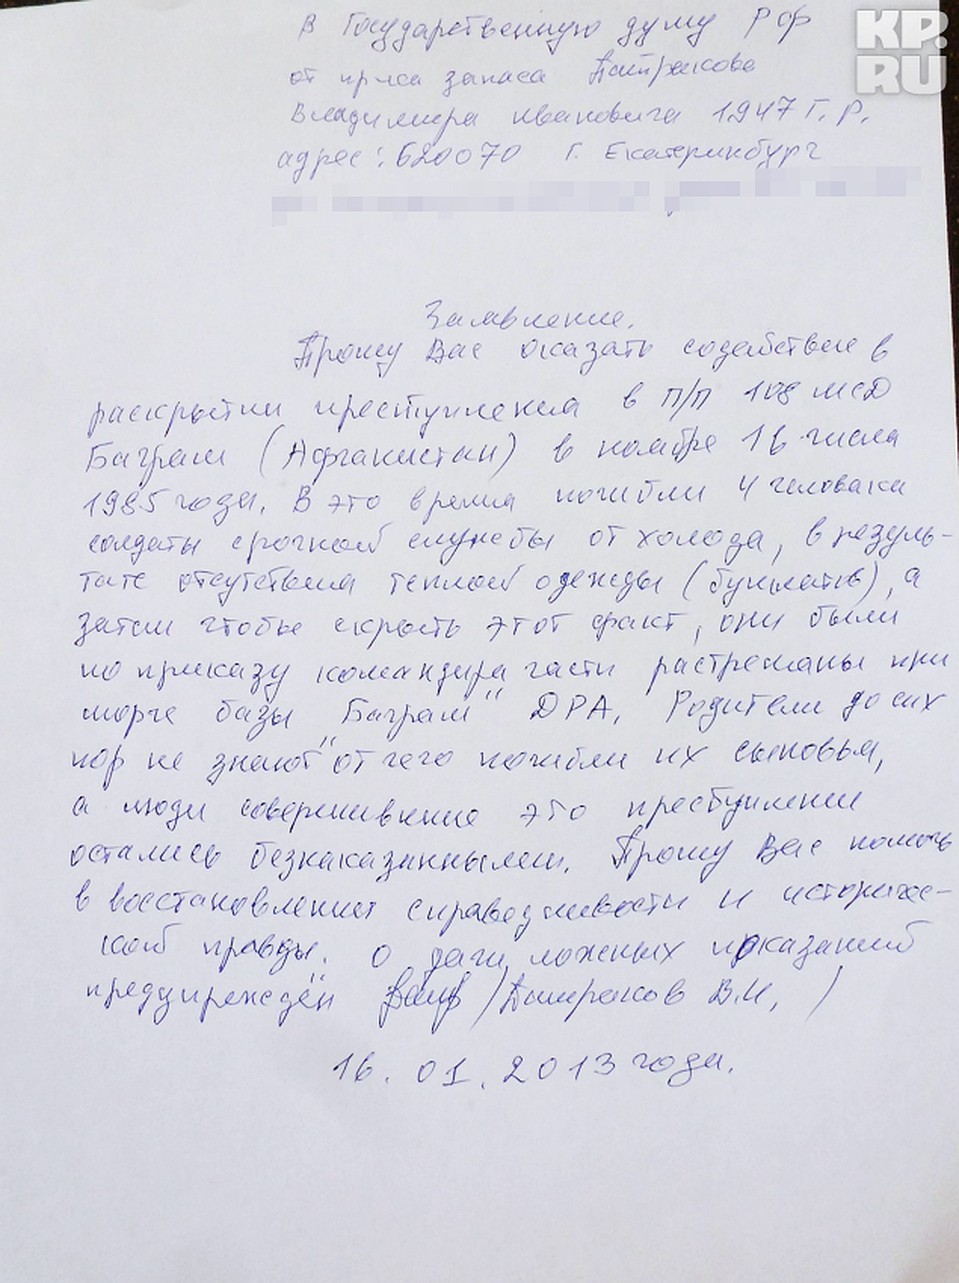 KP.
RU
В Государственную думу РФ
от пр-ка запаса Патракова
Владимира Ивановича 1947 г.р.
адрес: 620070 г. Екатеринбург
Заявление.
Прошу Вас оказать содействие в
раскрытии преступления в п/п 108 МСД
Баграм (Афганистан) в ноябре 16 числа
1985 года. В это время погибли 4 человека
солдаты срочной службы от холода, в резуль-
тате отсутствия теплой одежды (бушлатов), а
затем чтобы скрыть этот факт, они были
по приказу командира части растреляны при
морге базы "Баграм" ДРА. Родители до сих
пор не знают от чего погибли их сыновья,
а люди совершившие это преступление
остались безнаказанными. Прошу Вас помочь
в восстановлении справедливости и историчес-
кой правды. О даче ложных показаний
предупреждён /Патраков В.И./
16.01.2013 года.